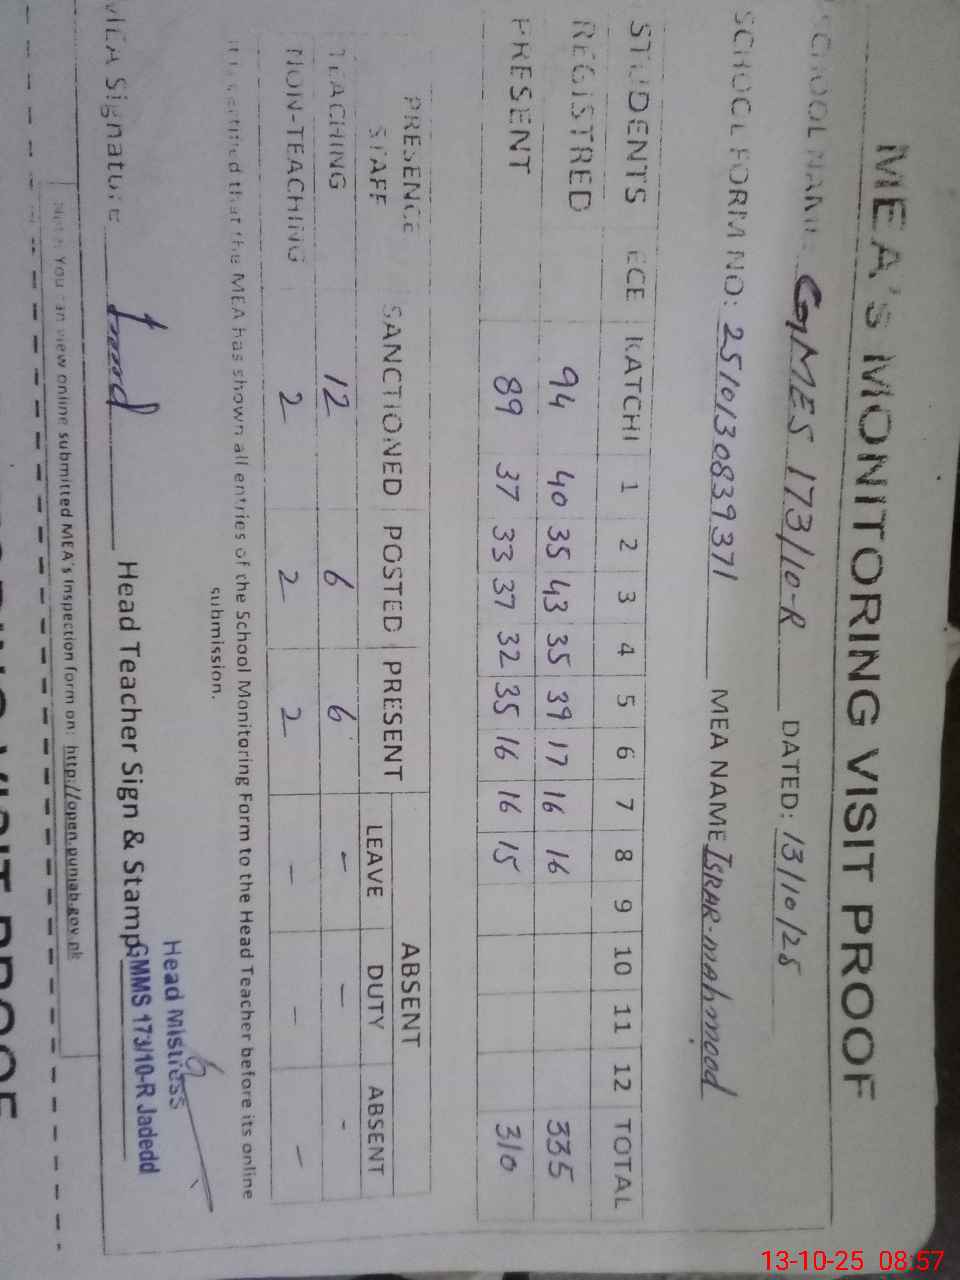 MEA'S MONITORING VISIT PROOF
SCHOOL NAME: GMES 173/10-R DATED: 13/10/25
SCHOOL FORM NO: 251013083937​1 MEA NAME ISRAR-mahmood
STUDENTS ECE KATCHI 1 2 3 4 5 6 7 8 9 10 11 12 TOTAL
REGISTRED 94 40 35 43 35 39 17 16 16 335
PRESENT 89 37 33 37 32 35 16 16 15 310
PRESENCE STAFF SANCTIONED POSTED PRESENT ABSENT
LEAVE DUTY ABSENT
TEACHING 12 6 6 - - -
NON-TEACHING 2 2 2 - - -
It is certified that the MEA has shown all entries of the School Monitoring Form to the Head Teacher before its online
submission.
MEA Signature Head Teacher Sign & Stamp
Head Mistress
GMMS 173/10-R Jadedd
Note: You can view online submitted MEA's Inspection form on: http://open.punjab.gov.pk
VISIT PROOF
13-10-25 08:57